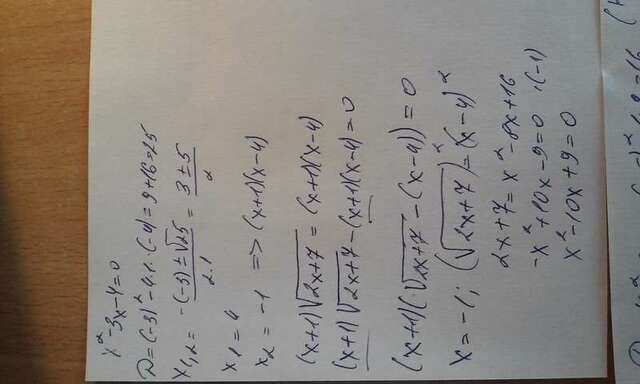 x² - 3x - 4 = 0
D = (-3)² - 4·1·(-4) = 9 + 16 = 25
x₁,₂ = (-(-3) ± √25) / (2·1) = (3 ± 5) / 2
x₁ = 4
x₂ = -1 => (x+1)(x-4)
(x+1)√(2x+7) = (x+1)(x-4)
(x+1)√(2x+7) - (x+1)(x-4) = 0
(x+1)(√(2x+7) - (x-4)) = 0
x = -1; (√(2x+7))² = (x-4)²
2x+7 = x² - 8x + 16
-x² + 10x - 9 = 0 ·(-1)
x² - 10x + 9 = 0